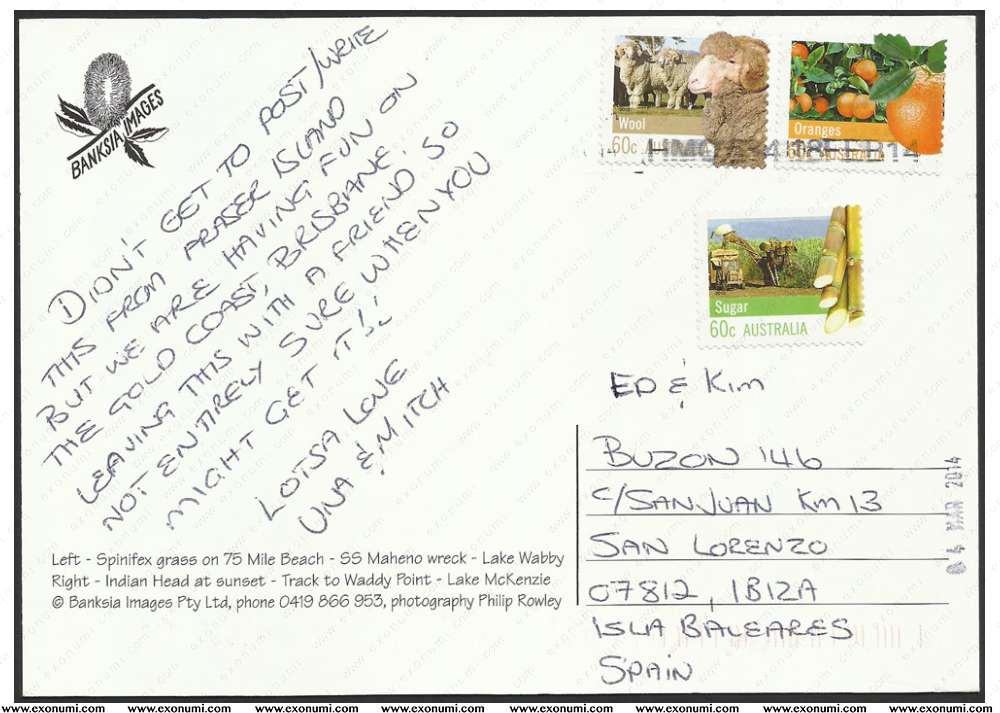 BANKSIA IMAGES
DIDN'T GET TO POST/WRITE
THIS FROM FRASER ISLAND
BUT WE ARE HAVING FUN ON
THE GOLD COAST, BRISBANE.
LEAVING THIS WITH A FRIEND SO
NOT ENTIRELY SURE WHEN YOU
MIGHT GET IT!!
LOTSA LOVE
& MITCH
Left - Spinifex grass on 75 Mile Beach - SS Maheno wreck - Lake Wabby
Right - Indian Head at sunset - Track to Waddy Point - Lake McKenzie
© Banksia Images Pty Ltd, phone 0419 866 953, photography Philip Rowley
Wool
60c
Oranges
60c
Sugar
60c AUSTRALIA
ED & KIM
BUZON 146
C/SAN JUAN KM 13
SAN LORENZO
07812, IBIZA
ISLA BALEARES
SPAIN
04 MAR 2014
www.exonumi.com www.exonumi.com www.exonumi.com www.exonumi.com www.exonumi.com www.exonumi.com www.exonumi.com www.exonumi.com